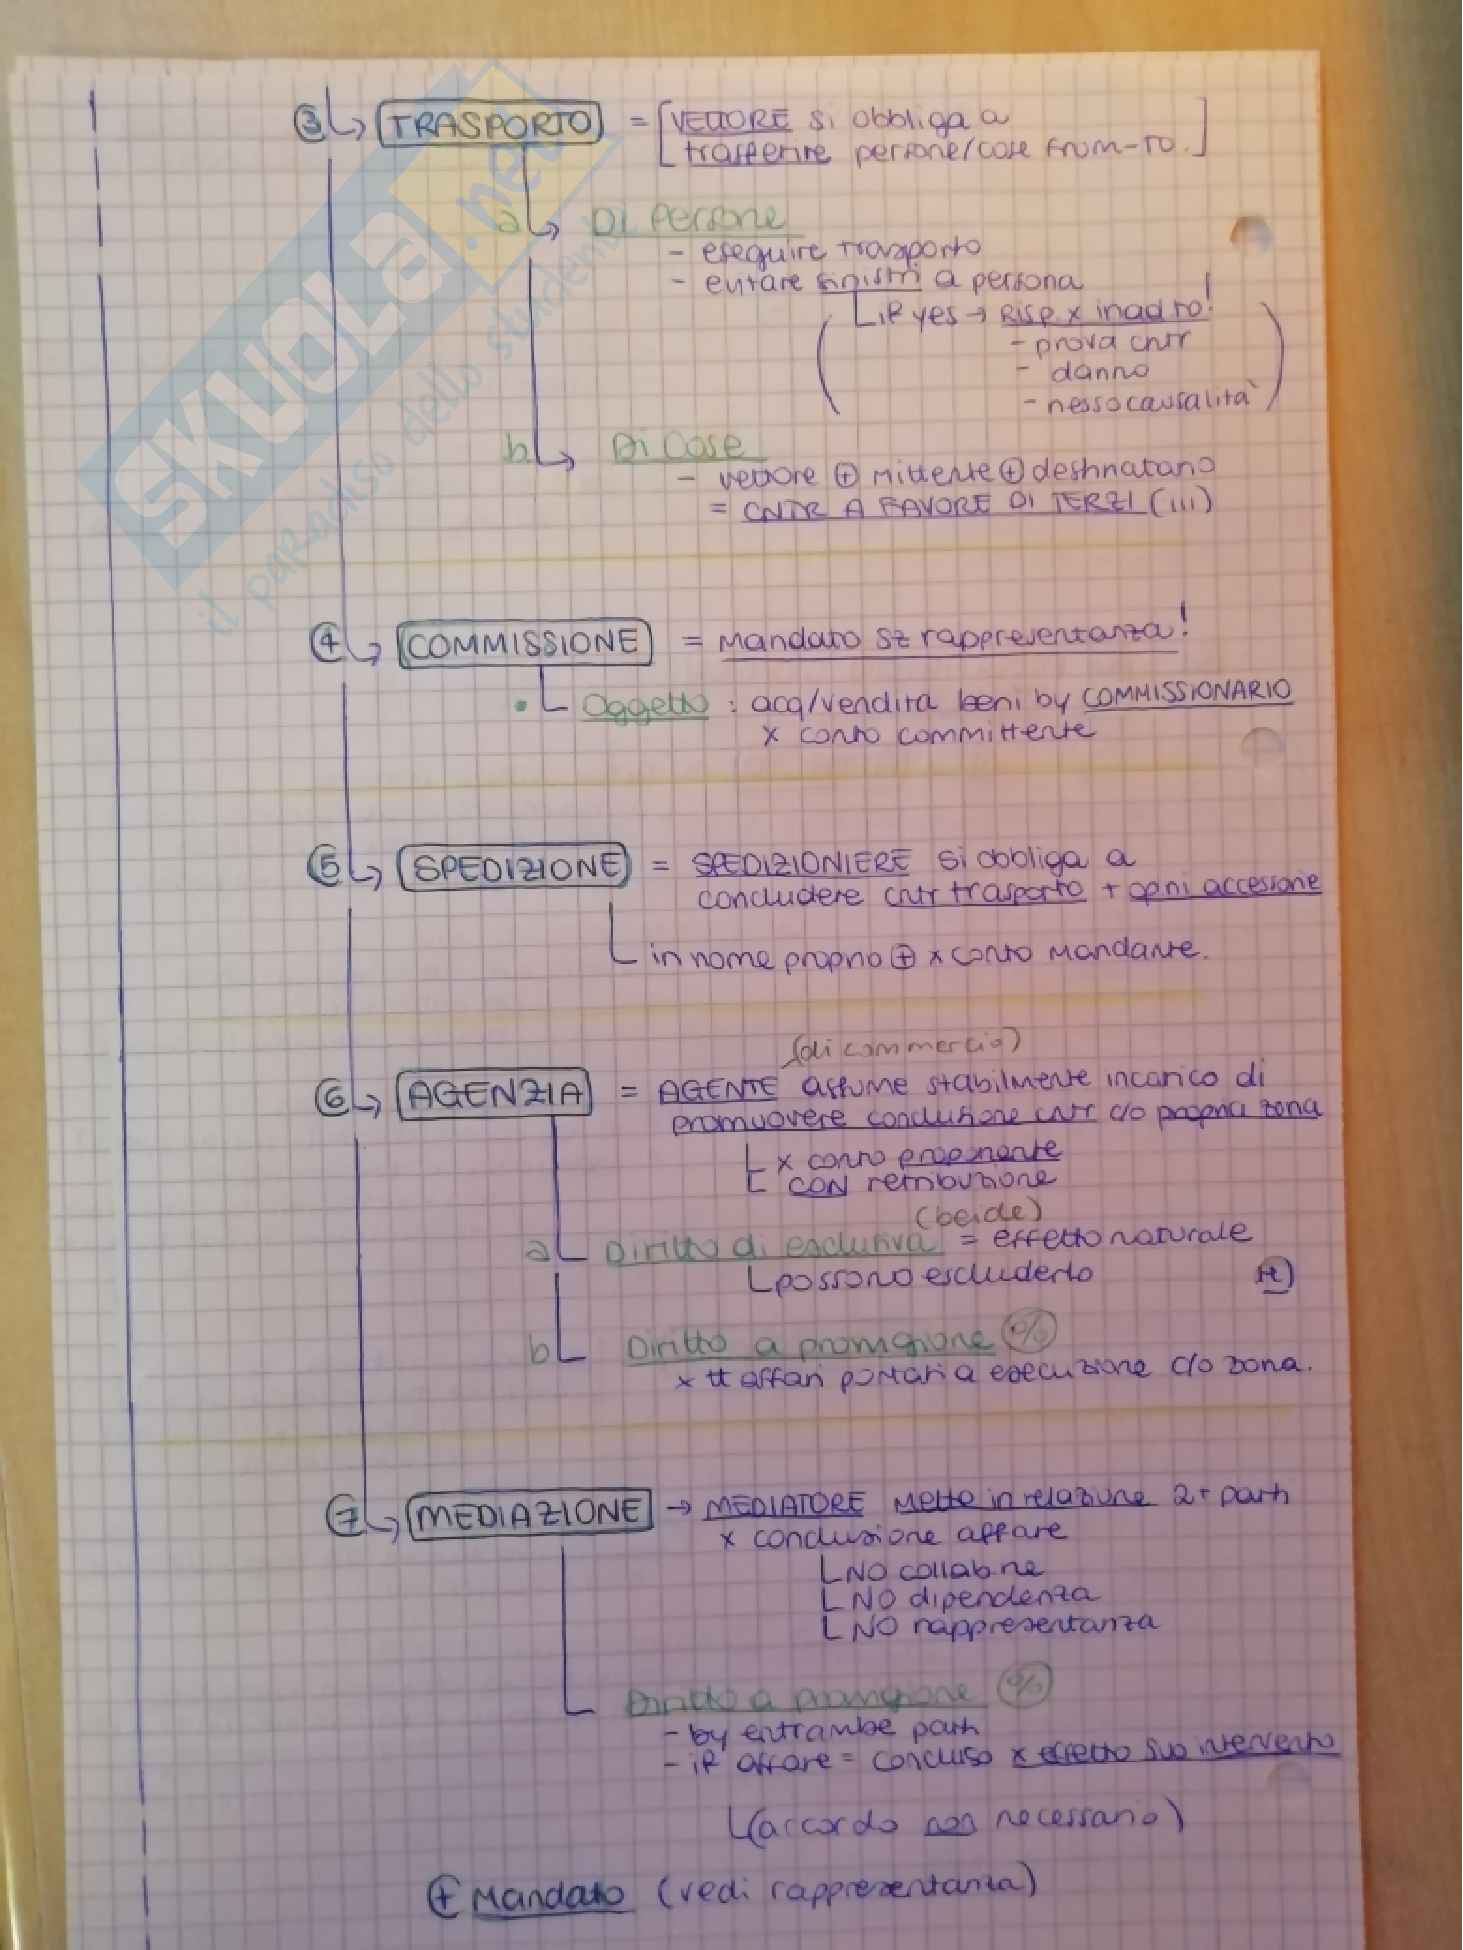 ③ ↳ TRASPORTO = [VETTORE si obbliga a
trasferire persone/cose from-to.]
a ↳ Di persone
- eseguire trasporto
- evitare sinistri a persona
↳ if yes → Risp x inad.to!
- prova cntr
- danno
- nesso causalità
b ↳ Di cose
- vettore ⊕ mittente ⊕ destinatario
= CNTR A FAVORE DI TERZI (III)
④ ↳ COMMISSIONE = Mandato sz rappresentanza!
• Oggetto : acq/vendita beni by COMMISSIONARIO
x conto committente
⑤ ↳ SPEDIZIONE = SPEDIZIONIERE si obbliga a
concludere cntr trasporto + ogni accessione
in nome proprio ⊕ x conto mandante.
(di commercio)
⑥ ↳ AGENZIA = AGENTE assume stabilmente incarico di
promuovere conclusione cntr c/o propria zona
x conto proponente
CON retribuzione
(beide)
a Diritto di esclusiva = effetto naturale
possono escluderlo
b Diritto a provvigione %
x tt affari portati a esecuzione c/o zona.
⑦ ↳ MEDIAZIONE → MEDIATORE mette in relazione 2+ parti
x conclusione affare
NO collab.ne
NO dipendenza
NO rappresentanza
Diritto a provvigione %
- by entrambe parti
- if affare = concluso x effetto suo intervento
(accordo non necessario)
⊕ Mandato (vedi rappresentanza)
SKUOLA.net
il paradiso dello studente